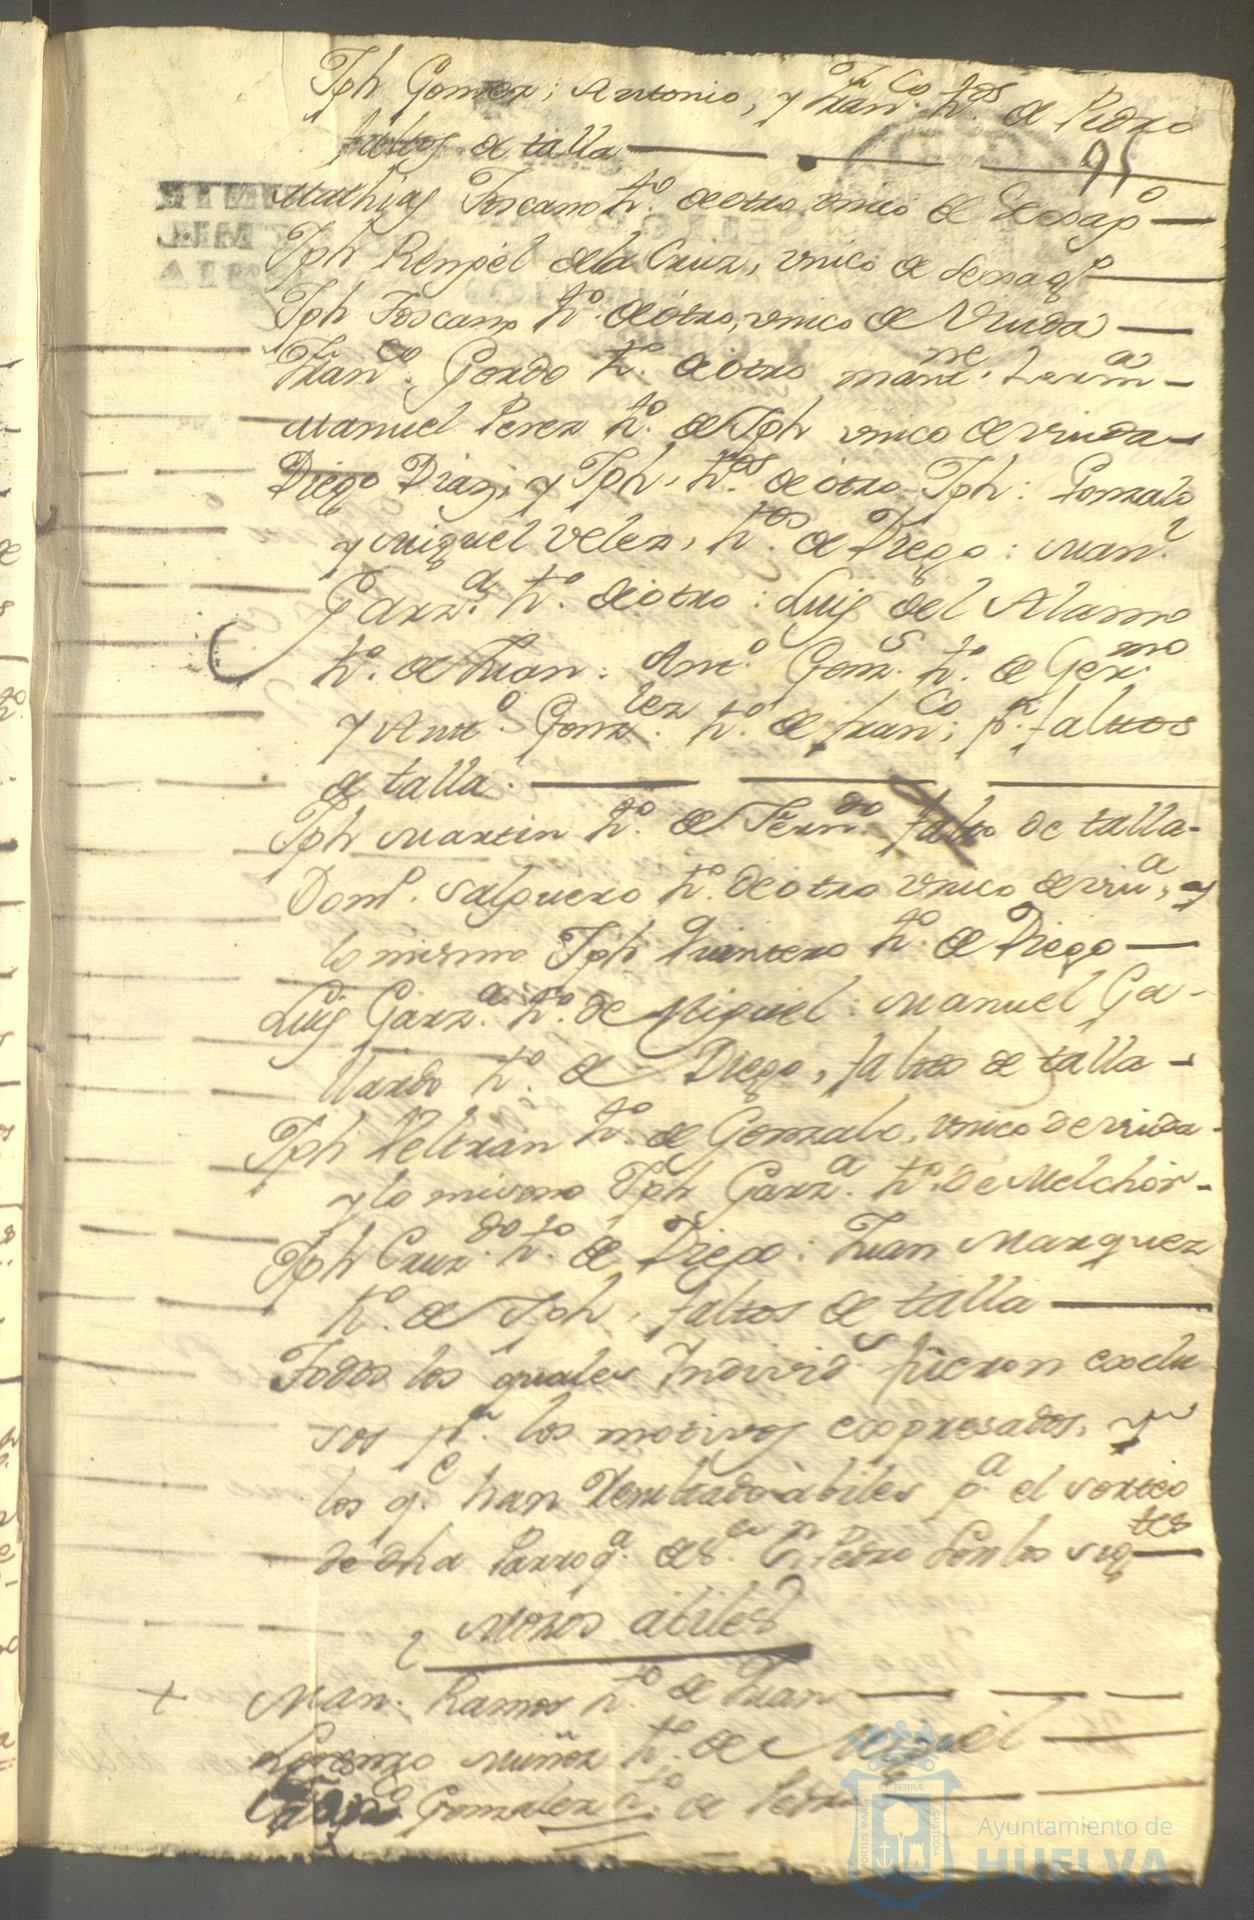 Jph Gomez; Antonio, y Franco. hos. de Pedro
faltos de talla
95
Mathias Toscano ho. de otro, unico de sexago
Jph Renjel dela Cruz, unico de sexago
Jph Toscano ho. de otro, unico de Viuda
Franco. Gordo ho. de otro mante. herma
Manuel Perez ho. de Jph unico de viuda
Diego Diaz, y Jph, hos. de otro Jph: Gonzalo
y Miguel Velez, hos. de Diego: Manl.
Garza. ho. de otro: Luis del Alamo
ho. de Juan: Anto. Gomz. ho. de Germo
y Anto. Gonzlez. ho. de Franco; pr. faltos
de talla.
Jph Martin ho. de Ferndo. falto de talla
Domo. Salguero ho. de otro unico de viua, y
lo mismo Jph Quintero ho. de Diego
Luis Garza. ho. de Miguel: Manuel Ga-
llardo ho. de Diego, faltos de talla
Jph Veltran ho. de Gonzalo, unico de viuda
y lo mismo Jph Garza. ho. de Melchor
Jph Cruzdo. ho. de Diego: Juan Marquez
ho. de Jph, faltos de talla
Todos los quales Individs fueron exclu
sos pr. los motivos expresados, y
los qe. han abiles pa. el sorteo
de dha Parroqa. de Sr. Sn. Pedro son los sigtes
Mozos abiles
+ Man. Ramos ho. de Juan
Lorenzo Muñoz ho. de Miguel
Franco Gonzalez ho. de Pedro
PORTUS MARIS
ET TERRÆ
CUSTODIA
Ayuntamiento de
HUELVA